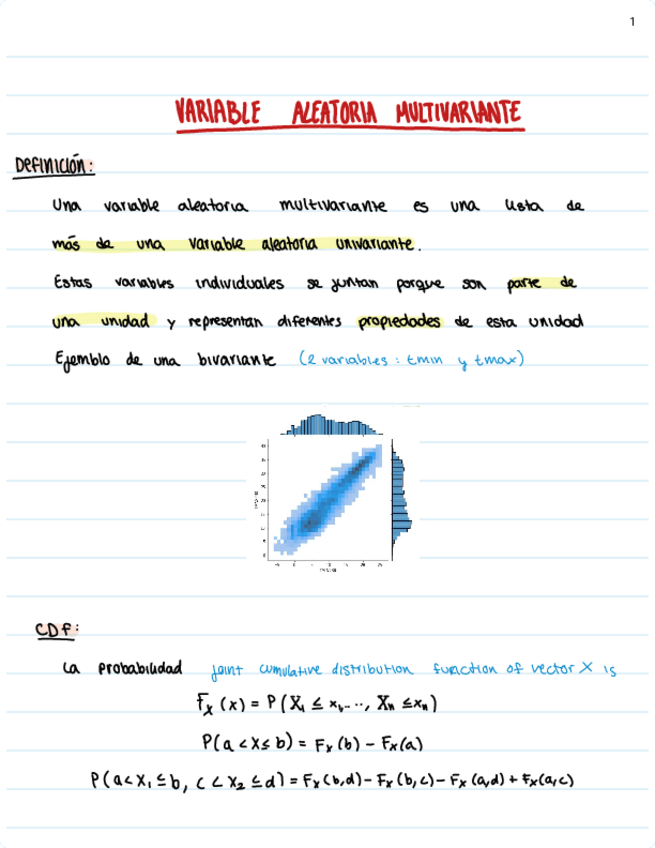 1
VARIABLE ALEATORIA MULTIVARIANTE
Definición:
Una variable aleatoria multivariante es una lista de
más de una variable aleatoria univariante.
Estas variables individuales se juntan porque son parte de
una unidad y representan diferentes propiedades de esta unidad
Ejemblo de una bivariante (2 variables: tmin y tmax)
CDF:
La probabilidad joint cumulative distribution function of vector X is
Fx (x) = P(X₁ ≤ x₁, ..., Xn ≤ xn)
P(a < X ≤ b) = Fx (b) - Fx(a)
P(a < X₁ ≤ b, c < X₂ ≤ d) = Fx (b,d) - Fx (b,c) - Fx (a,d) + Fx(a,c)